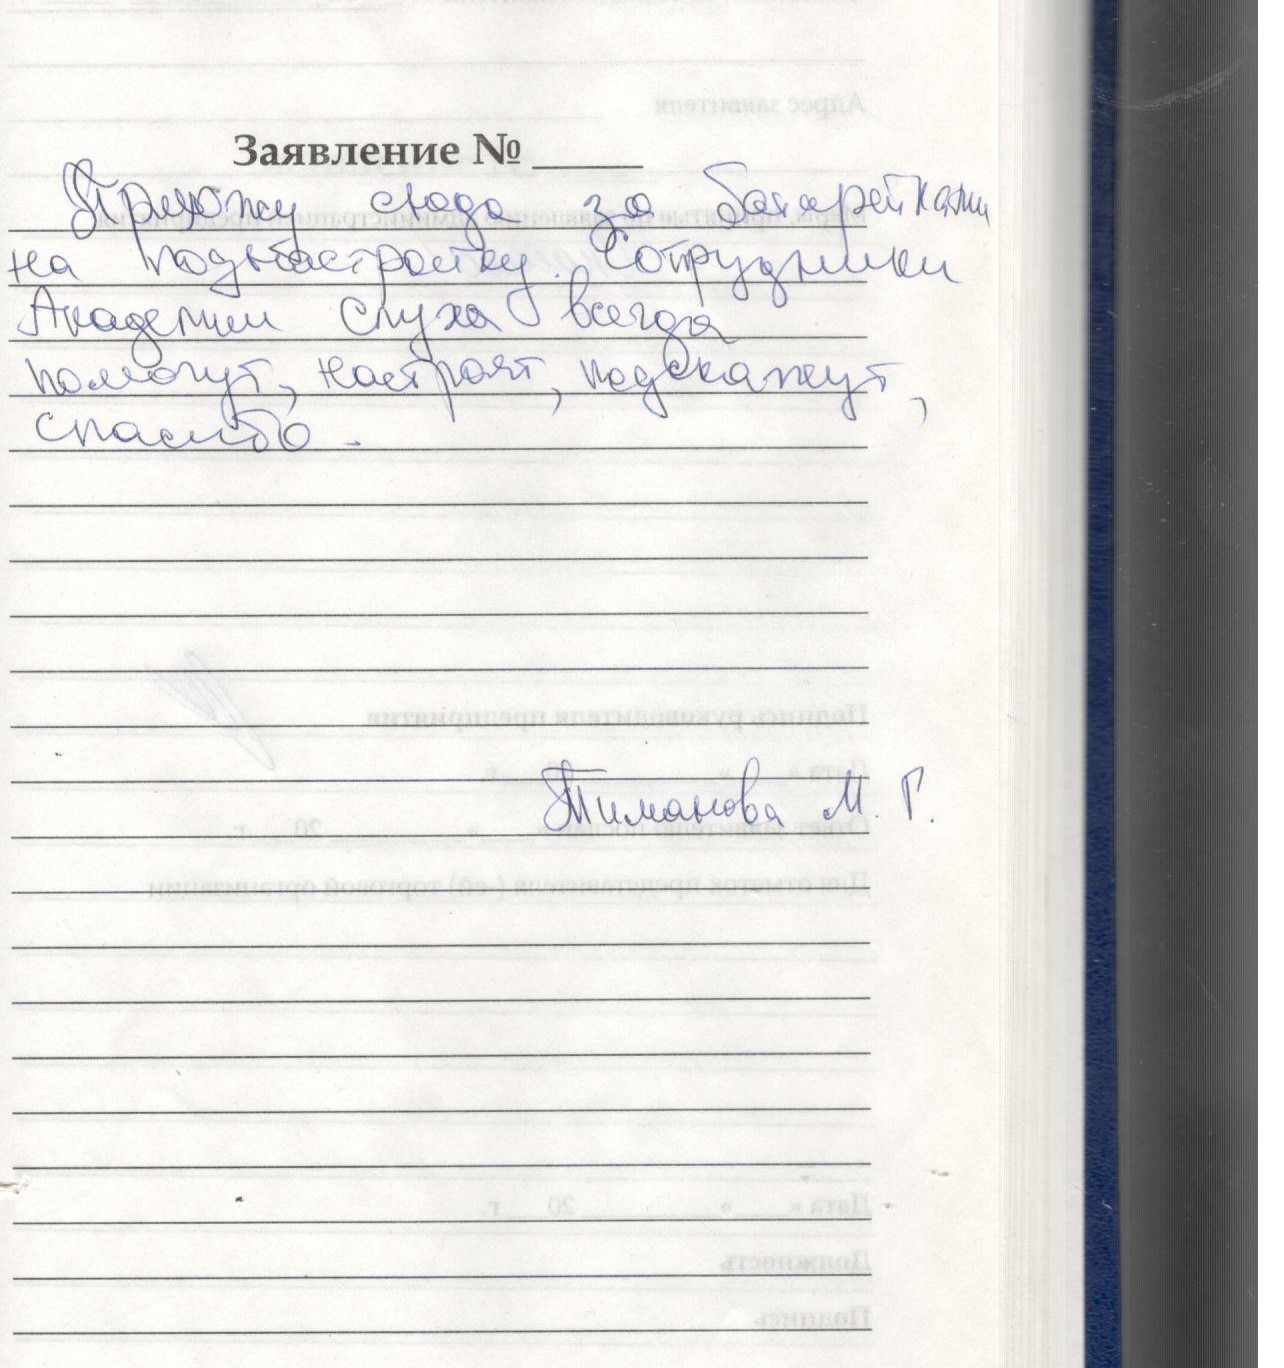 Заявление № _____
Прихожу сюда за батарейками
на поднастройку. Сотрудники
Академии Слуха всегда
помогут, настроят, подскажут,
спасибо.
Тиманова М. Г.